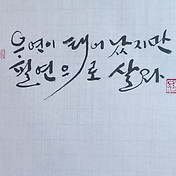 우연이 태어 났지만
필연으로 살라